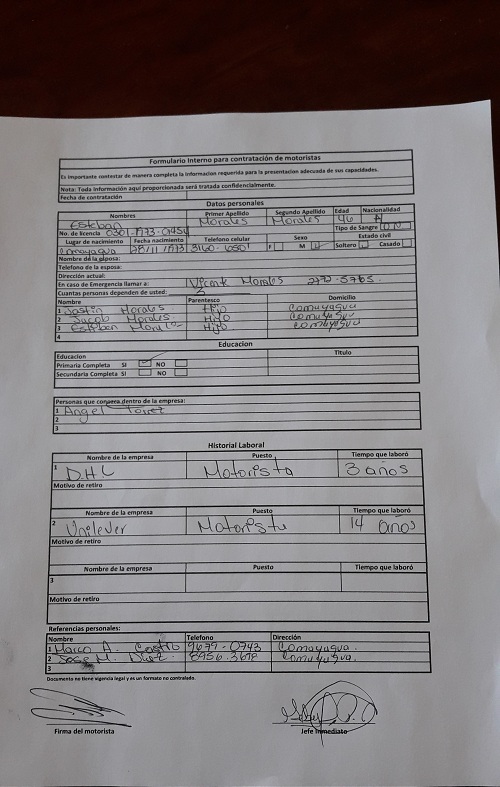 Formulario Interno para contratación de motoristas
Es importante contestar de manera completa la informacion requerida para la presentacion adecuada de sus capacidades.
Nota: Toda informacion aquí proporcionada será tratada confidencialmente.
Fecha de contratación
Datos personales
Nombres Primer Apellido Segundo Apellido Edad Nacionalidad
Esteban Morales Morales 46 H
No. de licencia 0301-1973-01454 Tipo de Sangre
Lugar de nacimiento Fecha nacimiento Telefono celular Sexo Estado civil
Comayagua 28/11/1973 3160-6501 F M Soltero Casado
Nombre de la esposa:
Telefono de la esposa:
Dirección actual:
En caso de Emergencia llamar a: Vicente Morales 2772-5765
Cuantas personas dependen de usted: 3
Nombre Parentesco Domicilio
1 Jastin Morales Hijo Comayagua
2 Jacob Morales Hijo Comayagua
3 Esteban Morales Hijo Comayagua
4
Educacion
Educacion Titulo
Primaria Completa SI NO
Secundaria Completa SI NO
Personas que conozca dentro de la empresa:
1 Angel Torrez
2
3
Historial Laboral
Nombre de la empresa Puesto Tiempo que laboró
1 DHL Motorista 3 años
Motivo de retiro
Nombre de la empresa Puesto Tiempo que laboró
2 Unilever Motorista 14 años
Motivo de retiro
Nombre de la empresa Puesto Tiempo que laboró
3
Motivo de retiro
Referencias personales:
Nombre Telefono Dirección
1 Marco A. Castro 9679-0743 Comayagua.
2 Jose M. Diaz. 8956-3678 Comayagua.
3
Documento no tiene vigencia legal y es un formato no controlado.
Firma del motorista Jefe Inmediato